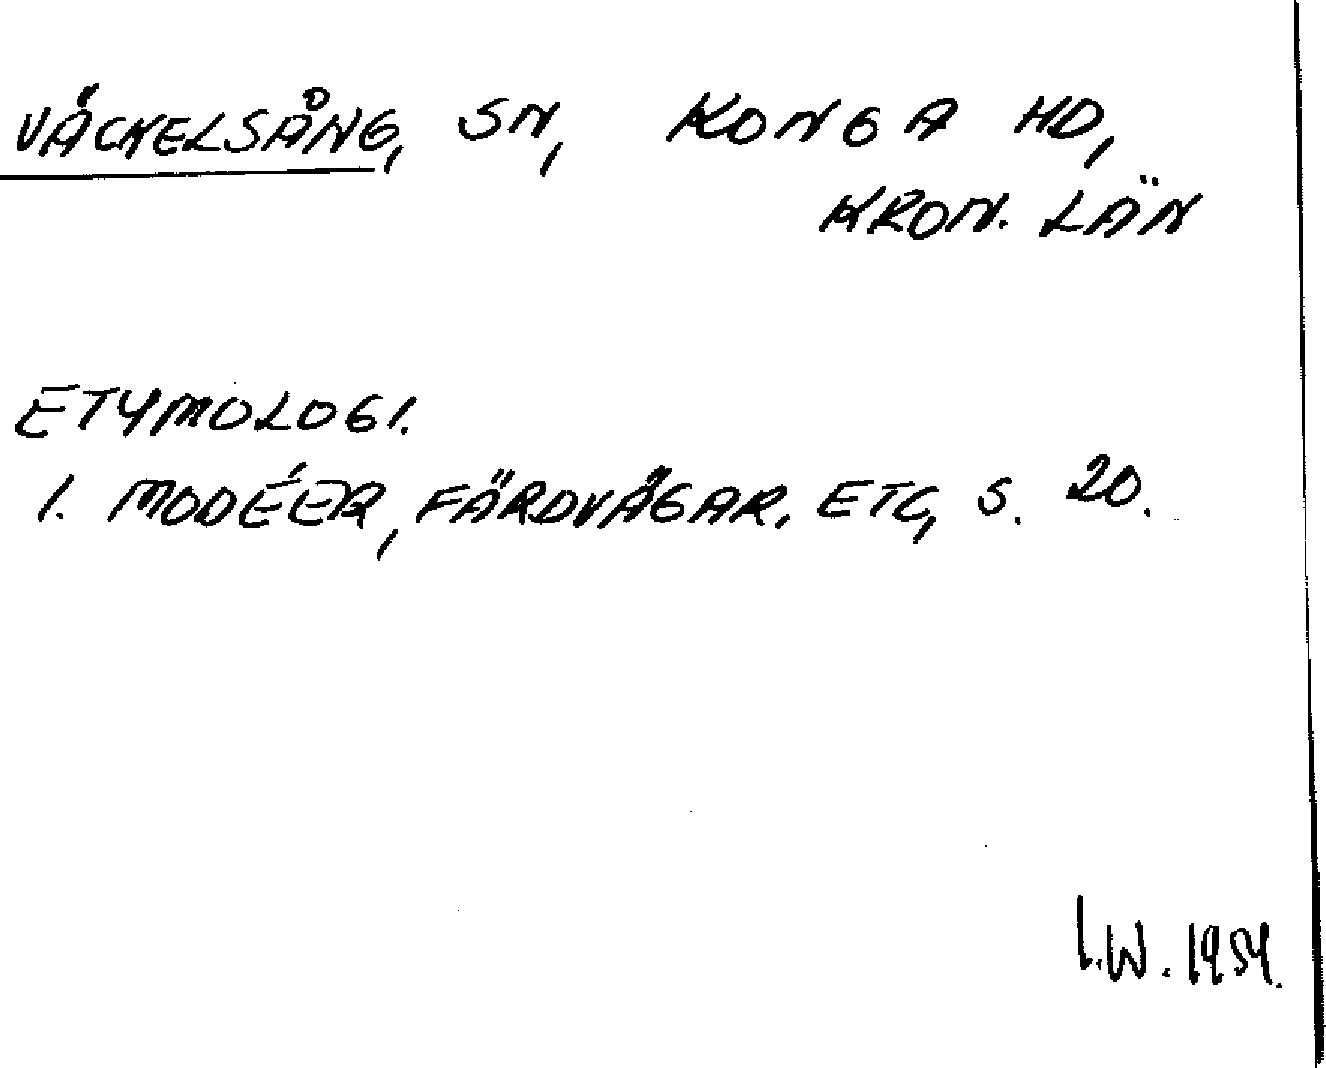 VÄCKELSÅNG, SN, KONGA HD,
KRON. LÄN
ETYMOLOGI.
1. MODÉER, FÄRDVÄGAR, ETC, S. 20.
I.W. 1954.